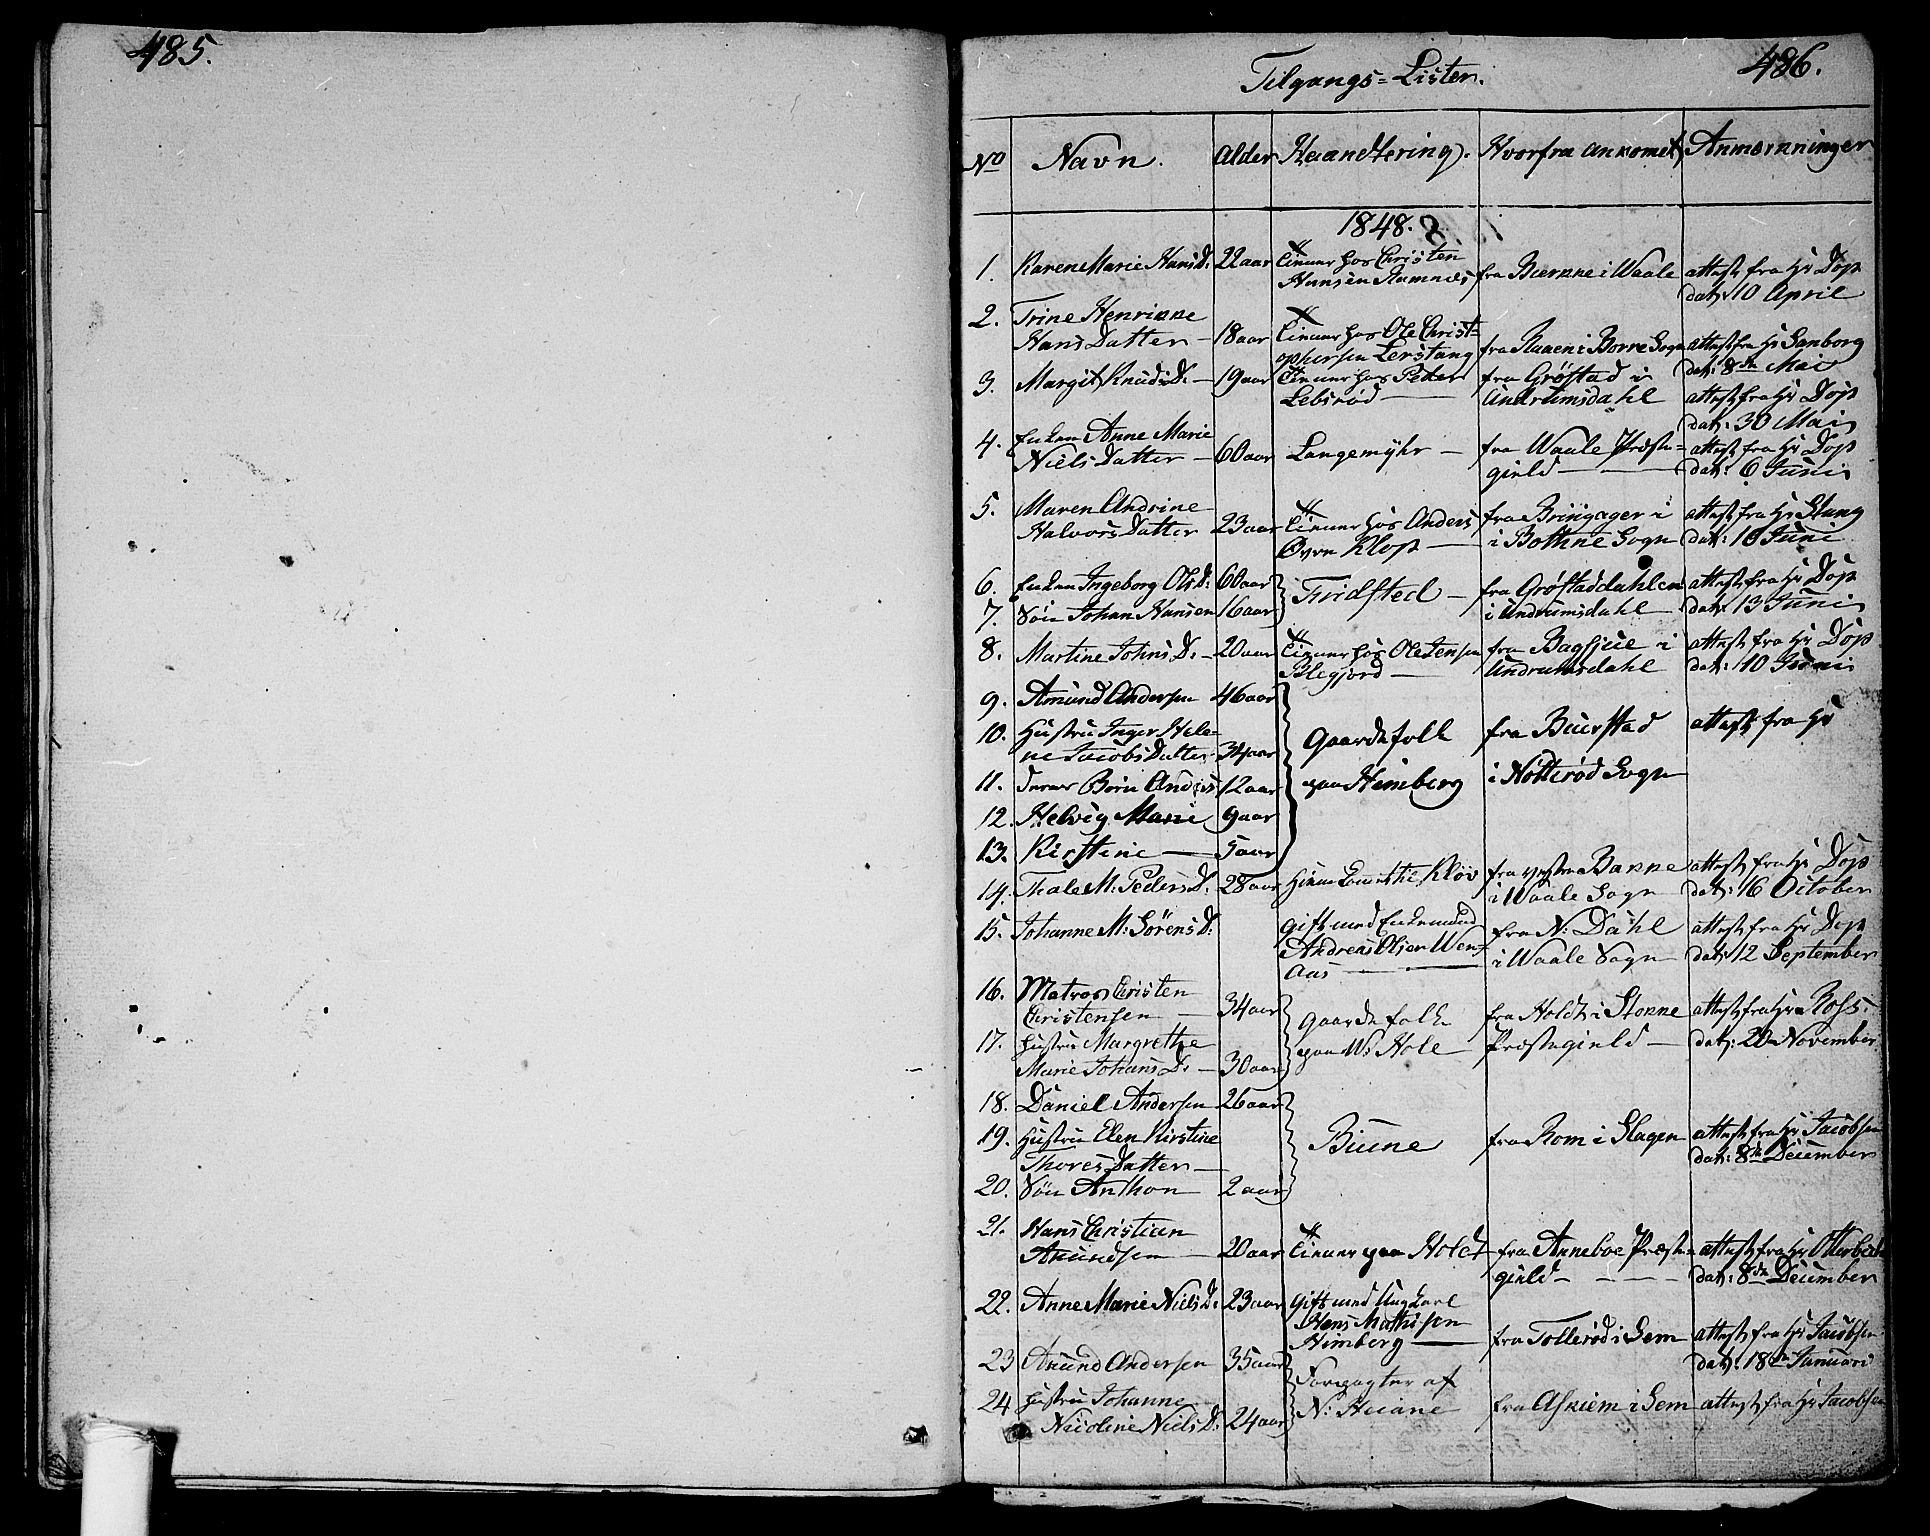 485.
486.
Tilgangs=Lister.
No Navn. Alder Haandtering. Hvorfra ankomet Anmærkninger
1848.
1. Karen Marie Hans D: 22 aar tiener hos Christen Hansen Ramnæs fra Bærkne i Waale attest fra Hr Dop
dat: 10 April
2. Trine Henrikke
Hans Datter 18 aar tiener hos Ole Christ=
ophersen Lerstang fra Raaen i Borre Sogn attest fra Hr
dat: 8de Mai
3. Margit Knuds D: 19 aar tiener hos Peder
Lebsrød fra Grøstad i
Undrumsdahl attest fra Hr Dop
dat: 30 Mai
4. Enken Anne Marie
Niels Datter 60 aar Langemyhr fra Waale Præste=
gield attest fra Hr Dop
dat: 6 Juni
5. Maren Andrine
Halvors Datter 23 aar tiener hos Anders
Øvre Klop fra Bringager i
i Bothne Sogn attest fra Hr Stang
dat: 10 Juni
6. Enken Ingeborg Ols D: 60 aar Fridsted fra Grøstaddahlen attest fra Hr Dop
7. Søn Johan Hansen 16 aar i Undrumsdahl dat: 13 Juni
8. Martine Johns D: 20 aar tiener hos Ole Jensen fra Bagsjue i attest fra Hr Dop
Blegjord Undrumsdahl dat: 10 Juni
9. Amund Andersen 46 aar
10. Hustru Inger Hele=
ne Jacobs Datter 34 aar Gaardefolk fra Buerstad attest fra Hr
11. deres Børn Anders 12 aar paa Himberg i Notterød Sogn
12. Helvig Marie 9 aar
13. Kirstine 5 aar
14. Thale M. Peders D: 28 aar Kløv fra vestre Bakke attest fra Hr Dop
i Waale Sogn dat: 16 October
15. Johanne M: Sørens D: gift med Enkemand fra N: Dahl attest fra Hr Dop
Andreas Olsen Wen= i Waale Sogn dat: 12 September
Aas
16. Matros Christen
Christensen 34 aar Gaardefolk fra Holdt i Stokke attest fra Hr Ross.
17. Hustru Margrethe paa W: Hole Præstegield dat: 20 November
Marie Johans D: 30 aar
18. Daniel Andersen 26 aar
19. Hustru Elen Kirstine Biune fra Rom i Slagen attest fra Hr Jacobsen
Thores Datter dat: 8de December
20. Søn Anthon 2 aar
21. Hans Christian
Amundsen 20 aar tiener paa Holdt fra Anneboe Præste= attest fra Hr
gield dat: 8de December
22. Anne Marie Niels D: 23 aar Gift med Ungkarl
Hans Mathisen
Himberg fra Tollerød i Sem attest fra Hr Jacobsen
dat: 18de Januari
23 Amund Andersen 35 aar Forpagter af
24 Hustru Johanne N: Heiane fra Askiem i Sem attest fra Hr Jacobsen
Nicoline Niels D: 24 aar